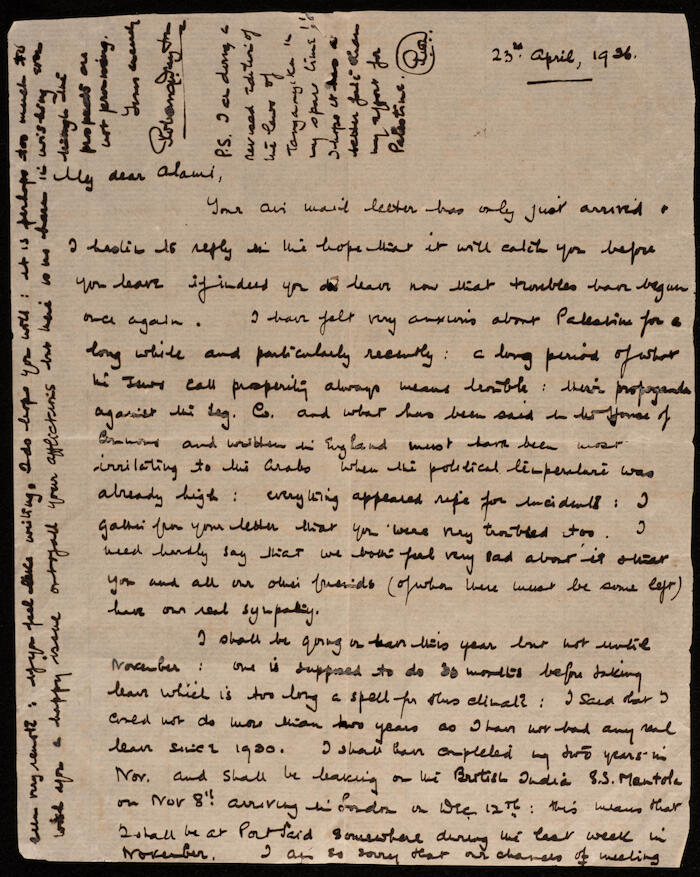 23rd April, 1936.
My dear Alami,
Your air mail letter has only just arrived.
I hasten to reply in the hope that it will catch you before
you leave if indeed you do leave now that troubles have begun
once again. I have felt very anxious about Palestine for a
long while and particularly recently: a long period of what
the Jews call prosperity always means trouble: their propaganda
against the Leg. Co. and what has been said in the House of
Commons and written in England must have been most
irritating to the Arabs when the political temperature was
already high: everything appeared ripe for incidents: I
gather from your letter that you were very troubled too. I
need hardly say that we both feel very sad about it & that
you and all our other friends (of whom there must be some left)
have our real sympathy.
I shall be going on leave this year but not until
November: one is supposed to do 30 months before taking
leave which is too long a spell for this climate: I said that I
could not do more than two years as I have not had any real
leave since 1930. I shall have completed my two years in
Nov. and shall be leaving on the British India S.S. Mantola
on Nov 8th arriving in London on Dec 12th: this means that
I shall be at Port Said somewhere during the last week in
November. I am so sorry that our chances of meeting
seem very remote: if you feel like writing I do hope you will: it is perhaps too much to
wish you a happy issue out of all your afflictions but there is no harm in wishing even
though the
prospects are
not promising.
Yours sincerely
P.S. I am doing a
revised edition of
the laws of
Tanganyika in
my spare time!!
I hope it has a
better fate than
my effort for
Palestine.